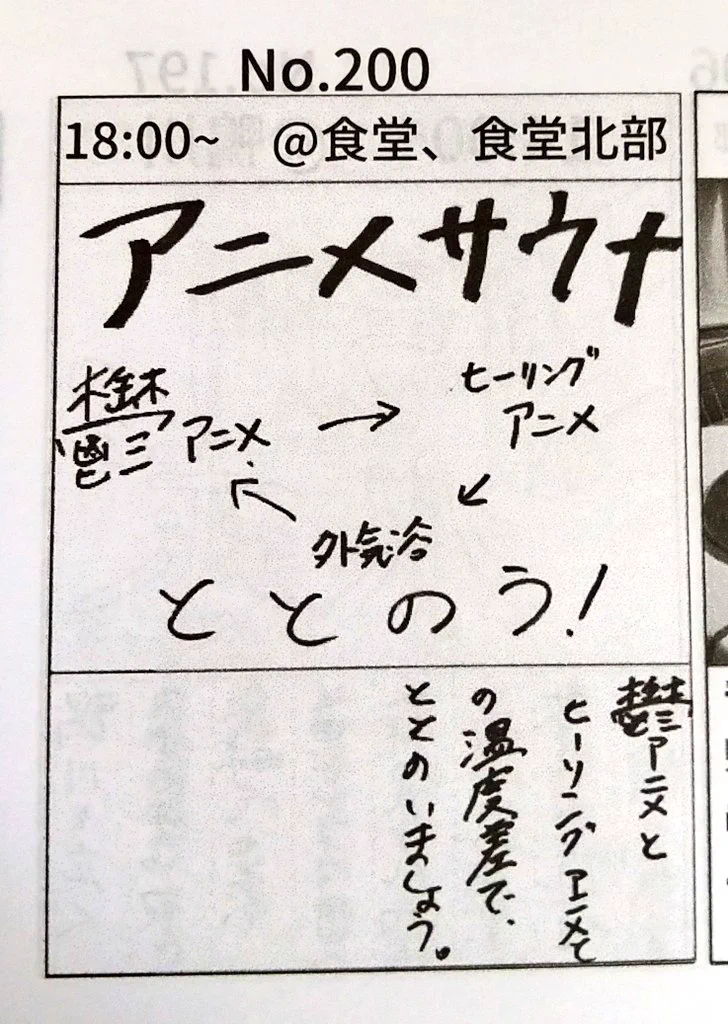 No.200
18:00~ @食堂、食堂北部
アニメサウナ
鬱アニメ
→
ヒーリング
アニメ
↙
外気浴
↖
ととのう!
鬱アニメと
ヒーリングアニメで
の温度差で、
ととのいましょう。